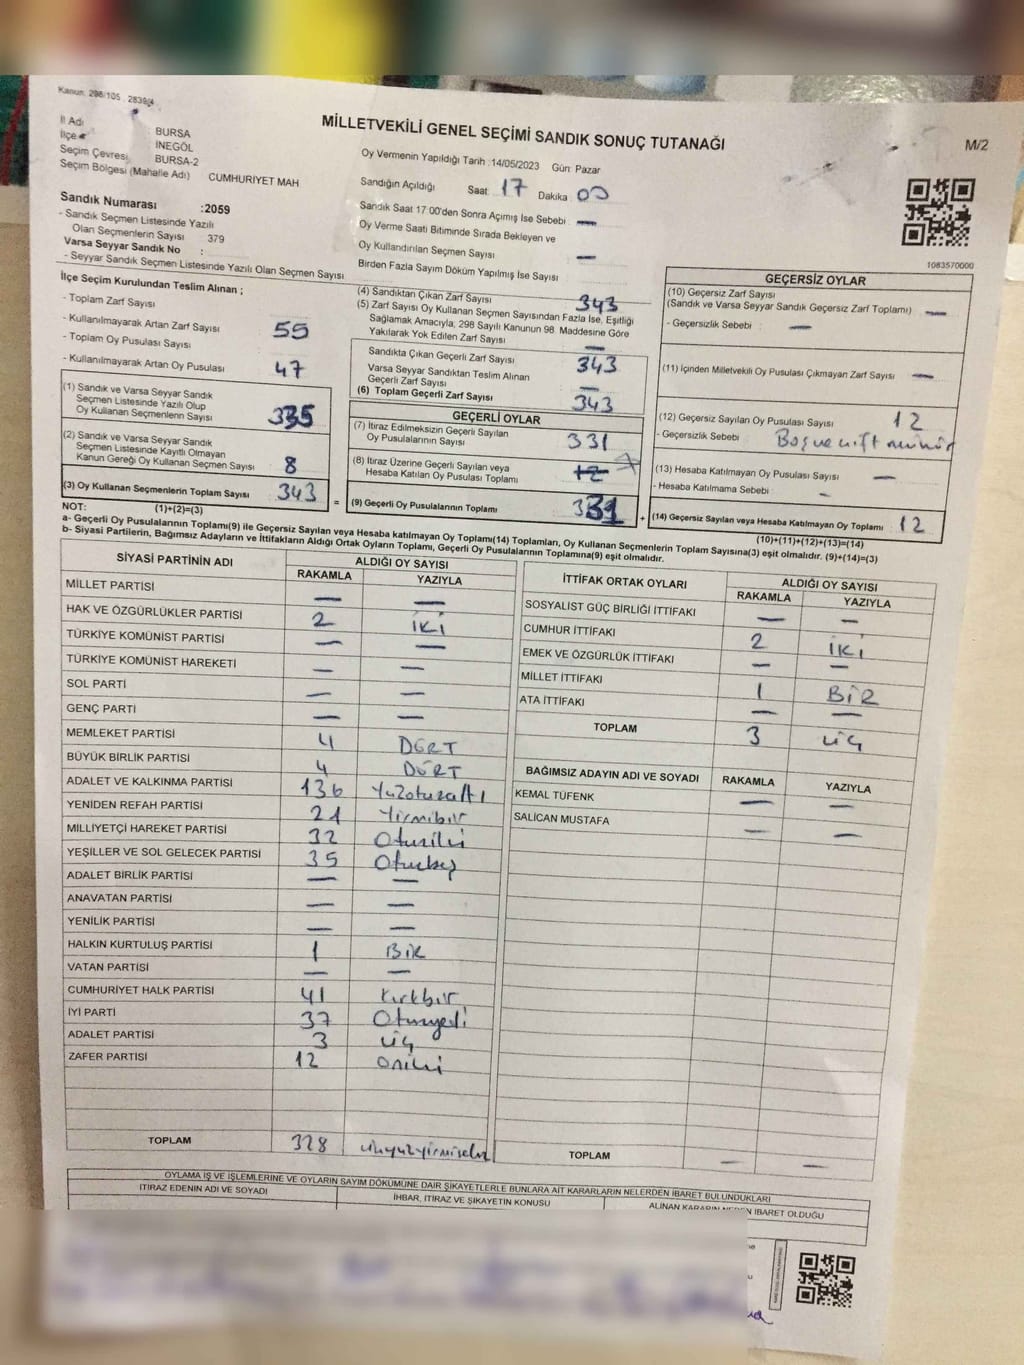 Kanun: 298/105 , 2839/4
MİLLETVEKİLİ GENEL SEÇİMİ SANDIK SONUÇ TUTANAĞI
M/2
İl Adı BURSA
İlçe İNEGÖL
Seçim Çevresi BURSA-2
Seçim Bölgesi (Mahalle Adı) CUMHURİYET MAH
Sandık Numarası :2059
- Sandık Seçmen Listesinde Yazılı
Olan Seçmenlerin Sayısı 379
Varsa Seyyar Sandık No :
- Seyyar Sandık Seçmen Listesinde Yazılı Olan Seçmen Sayısı
Oy Vermenin Yapıldığı Tarih :14/05/2023 Gün: Pazar
Sandığın Açıldığı Saat 17 Dakika 00
Sandık Saat 17:00'den Sonra Açımış İse Sebebi —
Oy Verme Saati Bitiminde Sırada Bekleyen ve
Oy Kullandırılan Seçmen Sayısı —
Birden Fazla Sayım Döküm Yapılmış İse Sayısı
1083570000
İlçe Seçim Kurulundan Teslim Alınan ;
- Toplam Zarf Sayısı
- Kullanılmayarak Artan Zarf Sayısı 55
- Toplam Oy Pusulası Sayısı
- Kullanılmayarak Artan Oy Pusulası 47
(1) Sandık ve Varsa Seyyar Sandık
Seçmen Listesinde Yazılı Olup
Oy Kullanan Seçmenlerin Sayısı 335
(2) Sandık ve Varsa Seyyar Sandık
Seçmen Listesinde Kayıtlı Olmayan
Kanun Gereği Oy Kullanan Seçmen Sayısı 8
(3) Oy Kullanan Seçmenlerin Toplam Sayısı 343
(4) Sandıktan Çıkan Zarf Sayısı 343
(5) Zarf Sayısı Oy Kullanan Seçmen Sayısından Fazla İse, Eşitliği
Sağlamak Amacıyla, 298 Sayılı Kanunun 98. Maddesine Göre
Yakılarak Yok Edilen Zarf Sayısı —
Sandıkta Çıkan Geçerli Zarf Sayısı 343
Varsa Seyyar Sandıktan Teslim Alınan
Geçerli Zarf Sayısı —
(6) Toplam Geçerli Zarf Sayısı 343
GEÇERLİ OYLAR
(7) İtiraz Edilmeksizin Geçerli Sayılan
Oy Pusulalarının Sayısı 331
(8) İtiraz Üzerine Geçerli Sayılan veya
Hesaba Katılan Oy Pusulası Toplamı 12
= (9) Geçerli Oy Pusulalarının Toplamı 331
GEÇERSİZ OYLAR
(10) Geçersiz Zarf Sayısı
(Sandık ve Varsa Seyyar Sandık Geçersiz Zarf Toplamı) —
- Geçersizlik Sebebi : —
(11) İçinden Milletvekili Oy Pusulası Çıkmayan Zarf Sayısı —
(12) Geçersiz Sayılan Oy Pusulası Sayısı 12
- Geçersizlik Sebebi :
(13) Hesaba Katılmayan Oy Pusulası Sayısı —
- Hesaba Katılmama Sebebi : —
+ (14) Geçersiz Sayılan veya Hesaba Katılmayan Oy Toplamı 12
NOT: (1)+(2)=(3) (10)+(11)+(12)+(13)=(14)
a- Geçerli Oy Pusulalarının Toplamı(9) ile Geçersiz Sayılan veya Hesaba katılmayan Oy Toplamı(14) Toplamları, Oy Kullanan Seçmenlerin Toplam Sayısına(3) eşit olmalıdır. (9)+(14)=(3)
b- Siyasi Partilerin, Bağımsız Adayların ve İttifakların Aldığı Ortak Oyların Toplamı, Geçerli Oy Pusulalarının Toplamına(9) eşit olmalıdır.
SİYASİ PARTİNİN ADI ALDIĞI OY SAYISI
RAKAMLA YAZIYLA
MİLLET PARTİSİ — —
HAK VE ÖZGÜRLÜKLER PARTİSİ 2 İKİ
TÜRKİYE KOMÜNİST PARTİSİ — —
TÜRKİYE KOMÜNİST HAREKETİ — —
SOL PARTİ — —
GENÇ PARTİ — —
MEMLEKET PARTİSİ 4 DÖRT
BÜYÜK BİRLİK PARTİSİ 4 DÖRT
ADALET VE KALKINMA PARTİSİ 136 Yüzotuzaltı
YENİDEN REFAH PARTİSİ 21 Yirmibir
MİLLİYETÇİ HAREKET PARTİSİ 32 Otuziki
YEŞİLLER VE SOL GELECEK PARTİSİ 35 Otuzbeş
ADALET BİRLİK PARTİSİ — —
ANAVATAN PARTİSİ — —
YENİLİK PARTİSİ — —
HALKIN KURTULUŞ PARTİSİ 1 BİR
VATAN PARTİSİ — —
CUMHURİYET HALK PARTİSİ 41 Kırkbir
İYİ PARTİ 37 Otuzyedi
ADALET PARTİSİ 3 ÜÇ
ZAFER PARTİSİ 12 Oniki
TOPLAM 328 üçyüzyirmisekiz
İTTİFAK ORTAK OYLARI ALDIĞI OY SAYISI
RAKAMLA YAZIYLA
SOSYALİST GÜÇ BİRLİĞİ İTTİFAKI — —
CUMHUR İTTİFAKI 2 İKİ
EMEK VE ÖZGÜRLÜK İTTİFAKI — —
MİLLET İTTİFAKI 1 BİR
ATA İTTİFAKI — —
TOPLAM 3 ÜÇ
BAĞIMSIZ ADAYIN ADI VE SOYADI RAKAMLA YAZIYLA
KEMAL TÜFENK — —
SALİCAN MUSTAFA — —
TOPLAM — —
OYLAMA İŞ VE İŞLEMLERİNE VE OYLARIN SAYIM DÖKÜMÜNE DAİR ŞİKAYETLERLE BUNLARA AİT KARARLARIN NELERDEN İBARET BULUNDUKLARI
İTİRAZ EDENİN ADI VE SOYADI İHBAR, İTİRAZ VE ŞİKAYETİN KONUSU ALINAN KARARIN NEDEN İBARET OLDUĞU